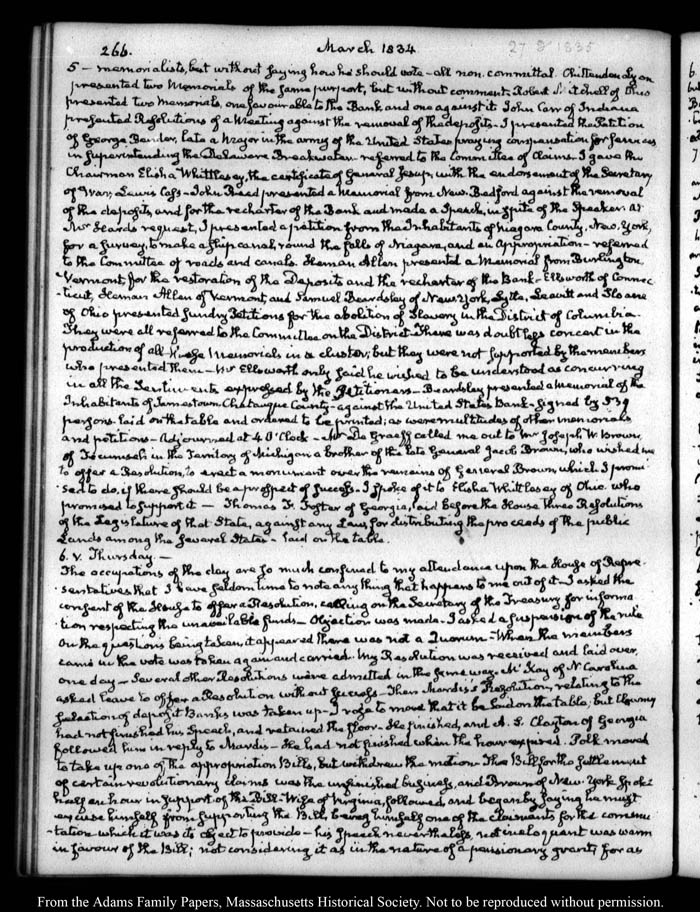 266.
March 1834
27 D 1835
5 — memorialists, but without saying how he should vote — all non-committal. Chittenden also
presented two Memorials of the same purport, but without comment. Robert Mitchell of Ohio
presented two Memorials, one favourable to the Bank and one against it. John Carr of Indiana
presented Resolutions of a Meeting against the removal of the deposits — I presented the Petition
of George Bender, late a Major in the army of the United States praying compensation for services
in superintending the Delaware Breakwater — referred to the Committee of Claims. I gave the
Chairman Elisha Whittlesey, the certificate of General Jesup, with the endorsement of the Secretary
of War, Lewis Cass — John Reed presented a Memorial from New-Bedford against the removal
of the deposits, and for the recharter of the Bank and made a Speech, in spite of the Speaker. At
Mr Hards request, I presented a petition from the Inhabitants of Niagara County, New-York,
for a survey, to make a ship canal, round the falls of Niagara, and an Appropriation — referred
to the Committee of roads and canals. Heman Allen presented a Memorial from Burlington
Vermont, for the restoration of the Deposits and the recharter of the Bank — Ellsworth of Connec-
ticut, Heman Allen of Vermont, and Samuel Beardsley of New-York, Lytle, Leavitt and Sloane
of Ohio presented sundry Petitions for the abolition of Slavery in the District of Columbia —
They were all referred to the Committee on the District — There was doubtless concert in the
production of all these Memorials in a cluster; but they were not supported by the members
who presented them — Mr Ellsworth only said he wished to be understood as concurring
in all the Sentiments expressed by the Petitioners — Beardsley presented a Memorial of the
Inhabitants of Jamestown Chatauque County — against the United States Bank — signed by
persons. laid on the table and ordered to be printed; as were multitudes of other memorials
and petitions — Adjourned at 4 O'Clock — Mr De Graeff called me out to Mr Joseph W Brown,
of Tecumseh in the Territory of Michigan a brother of the late General Jacob Brown, who wished me
to offer a Resolution, to erect a monument over the remains of General Brown, which I promi-
sed to do, if there should be a prospect of success — I spoke of it to Elisha Whittlesey of Ohio who
promised to support it — Thomas F. Foster of Georgia, laid before the House three Resolutions
of the Legislature of that State, against any Law, for distributing the proceeds of the public
Lands among the several States — laid on the table.
6. V. Thursday. —
The occupations of the day are so much confined to my attendance upon the House of Repre-
sentatives that I have seldom time to note any thing that happens to me out of it — I asked the
consent of the House to offer a Resolution, calling on the Secretary of the Treasury for informa-
tion respecting the unavailable funds — Objection was made — I asked a suspension of the rule
On the questions being taken, it appeared there was not a Quorum — When the members
came in the vote was taken again and carried. My Resolution was received and laid over,
one day — Several other Resolutions were admitted in the same way. McKay of N. Carolina
asked leave to offer a Resolution without success — Then Mardis's Resolution, relating to the
selection of deposit Banks was taken up — I rose to move that it be laid on the table, but Clowney
had not finished his Speech, and retained the floor — He finished, and A. S. Clayton of Georgia
followed him in reply to Mardis — He had not finished when the hour expired. Polk moved
to take up one of the appropriation Bills, but withdrew the motion — The Bill for the settlement
of certain revolutionary claims was the unfinished business, and Brown of New-York spoke
half an hour in support of the Bill — Wise of Virginia, followed, and began by saying he must
excuse himself from supporting the Bill, being himself one of the Claimants for the commu-
-tation which it was its object to provide — his Speech nevertheless, not ineloquent was warm
in favour of the Bill; not considering it as in the nature of a pensionary grant; for as
From the Adams Family Papers, Massachusetts Historical Society. Not to be reproduced without permission.